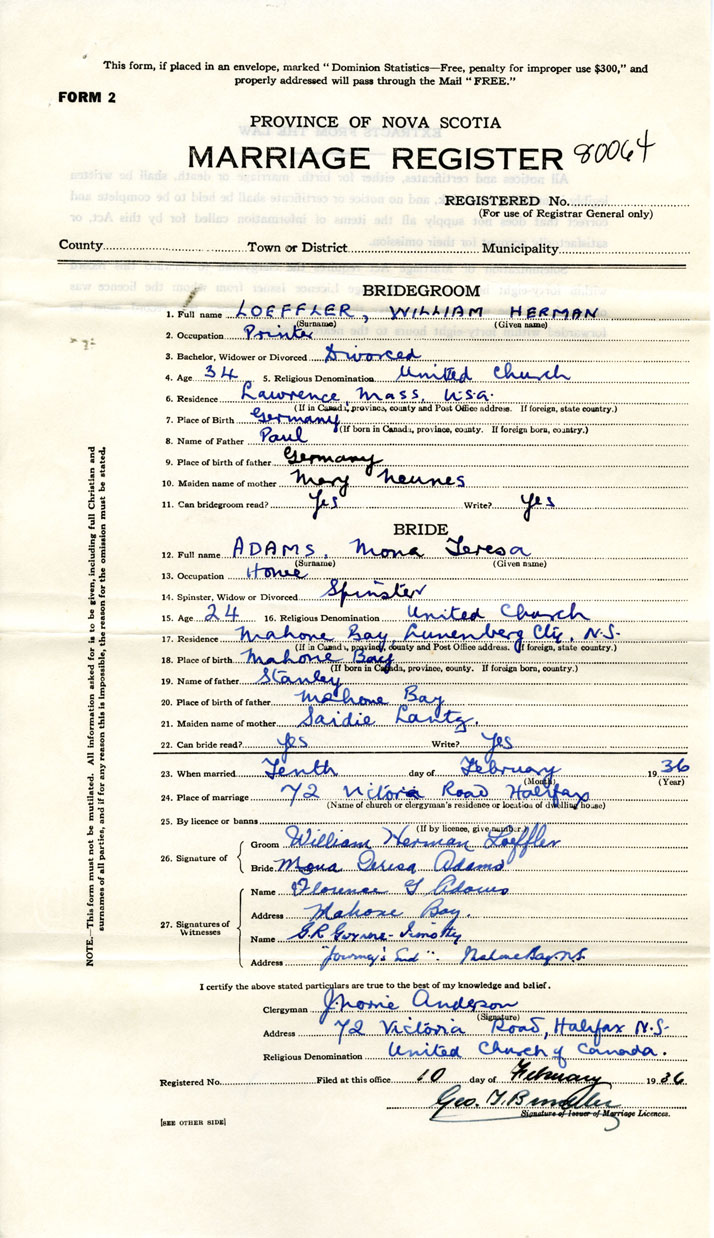 This form, if placed in an envelope, marked "Dominion Statistics—Free, penalty for improper use $300," and
properly addressed will pass through the Mail "FREE."
FORM 2
PROVINCE OF NOVA SCOTIA
MARRIAGE REGISTER 80064
REGISTERED No.
(For use of Registrar General only)
County Town or District Municipality
BRIDEGROOM
1. Full name LOEFFLER, WILLIAM HERMAN
(Surname) (Given name)
2. Occupation Printer
3. Bachelor, Widower or Divorced Divorced
4. Age 34 5. Religious Denomination United Church
6. Residence Lawrence, Mass, U.S.A.
(If in Canada, province, county and Post Office address. If foreign, state country.)
7. Place of Birth Germany
(If born in Canada, province, county. If foreign born, country.)
8. Name of Father Paul
9. Place of birth of father Germany
10. Maiden name of mother Mary
11. Can bridegroom read? Yes Write? Yes
BRIDE
12. Full name ADAMS, Mona Teresa
(Surname) (Given name)
13. Occupation Home
14. Spinster, Widow or Divorced Spinster
15. Age 24 16. Religious Denomination United Church
17. Residence Mahone Bay, Lunenberg Cty, N.S.
(If in Canada, province, county and Post Office address. If foreign, state country.)
18. Place of birth Mahone Bay
(If born in Canada, province, county. If foreign born, country.)
19. Name of father Stanley
20. Place of birth of father Mahone Bay
21. Maiden name of mother Saidie Lantz.
22. Can bride read? Yes Write? Yes
23. When married Tenth day of February 1936
(Month) (Year)
24. Place of marriage 72 Victoria Road Halifax
(Name of church or clergyman's residence or location of dwelling house)
25. By licence or banns
(If by licence, give number.)
26. Signature of Groom William Herman Loeffler
Bride Mona Teresa Adams
27. Signatures of Witnesses Name Florence G Adams
Address Mahone Bay.
Name G.R. Gwynne-Timothy
Address "Journey's End". Mahone Bay. N.S.
I certify the above stated particulars are true to the best of my knowledge and belief.
Clergyman Anderson
(Signature)
Address 72 Victoria Road, Halifax N.S.
Religious Denomination United Church of Canada.
Registered No. Filed at this office 10 day of February 1936
Geo. T.
Signature of Issuer of Marriage Licences.
[SEE OTHER SIDE]
NOTE.—This form must not be mutilated. All information asked for is to be given, including full Christian and
surnames of all parties, and if for any reason this is impossible, the reason for the omission must be stated.